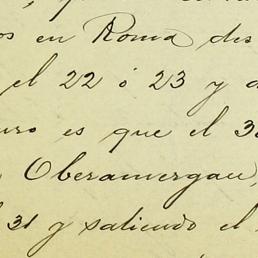 os en Roma des
el 22 ó 23 y d
uro es que el 3
Oberamergau,
31 y saliendo el